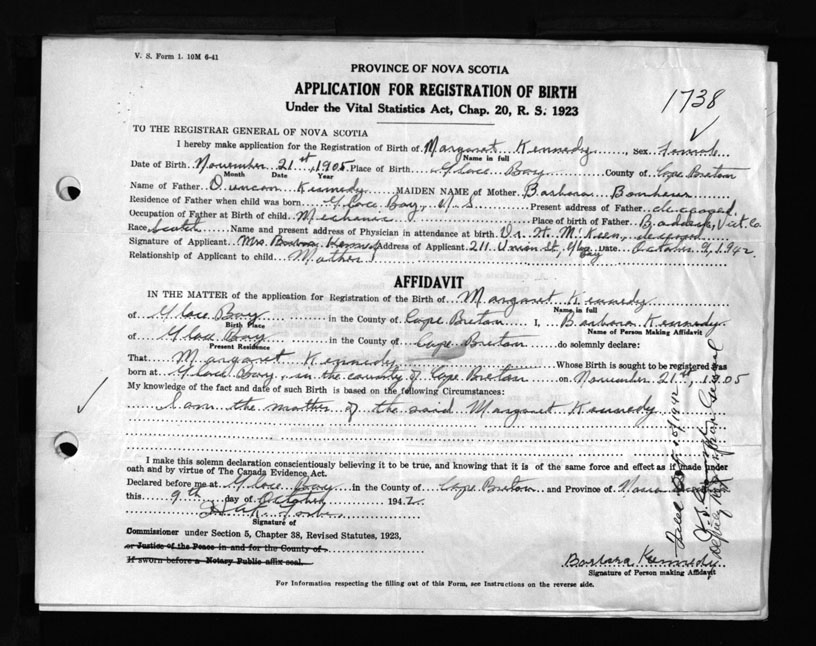 V. S. Form 1. 10M 6-41
PROVINCE OF NOVA SCOTIA
APPLICATION FOR REGISTRATION OF BIRTH
Under the Vital Statistics Act, Chap. 20, R. S. 1923
1738
TO THE REGISTRAR GENERAL OF NOVA SCOTIA
I hereby make application for the Registration of Birth of Margaret Kennedy, Sex female
Name in full
Date of Birth November 21st, 1905 Place of Birth Glace Bay County of Cape Breton
Month Date Year
Name of Father Duncan Kennedy MAIDEN NAME of Mother Barbara
Residence of Father when child was born Glace Bay, N.S. Present address of Father deceased
Occupation of Father at Birth of child Mechanic Place of birth of Father Baddeck, Vict. Co.
Race Scotch Name and present address of Physician in attendance at birth Dr. M. Keen, deceased
Signature of Applicant Mrs. Barbara Kennedy Address of Applicant 211 Union St., Glace Bay Date October 9, 1942
Relationship of Applicant to child Mother
AFFIDAVIT
IN THE MATTER of the application for Registration of the Birth of Margaret Kennedy
Name in full
of Glace Bay in the County of Cape Breton I, Barbara Kennedy
Birth Place Name of Person Making Affidavit
of Glace Bay in the County of Cape Breton do solemnly declare:
Present Residence
That Margaret Kennedy Whose Birth is sought to be registered was
born at Glace Bay, in the county of Cape Breton on November 21st, 1905
My knowledge of the fact and date of such Birth is based on the following Circumstances:
I am the mother of the said Margaret Kennedy
I make this solemn declaration conscientiously believing it to be true, and knowing that it is of the same force and effect as if made under
oath and by virtue of The Canada Evidence Act.
Declared before me at Glace Bay in the County of Cape Breton and Province of Nova
this 9th day of October 1942
Signature of
Commissioner under Section 5, Chapter 38, Revised Statutes, 1923,
or Justice of the Peace in and for the County of
If sworn before a Notary Public affix seal.
Barbara Kennedy
Signature of Person making Affidavit
For Information respecting the filling out of this Form, see Instructions on the reverse side.
Deputy Registrar General